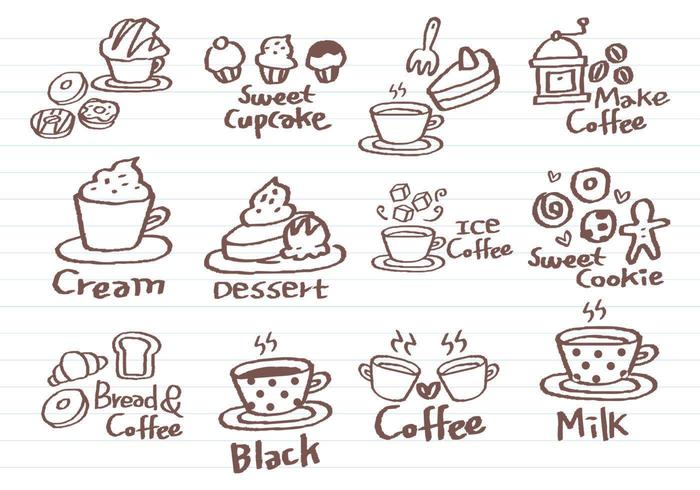 Sweet
Cupcake
Make
Coffee
Cream
Dessert
Ice
Coffee
Sweet
Cookie
Bread &
Coffee
Black
Coffee
Milk